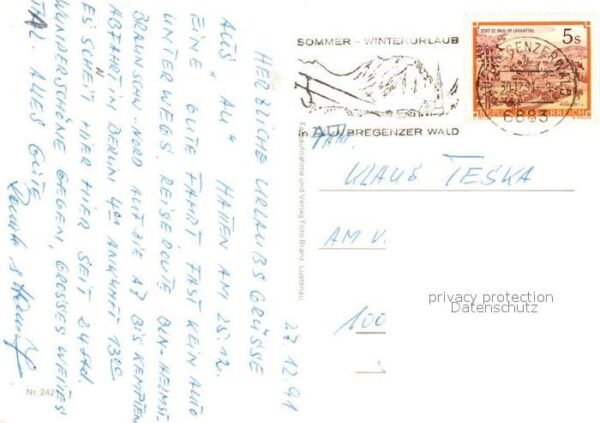 27.12.91
HERZLICHE URLAUBSGRÜSSE
AUS "AU" HATTEN AM 25.12.
EINE GUTE FAHRT FAST KEIN AUTO
UNTERWEGS. REISEROUTE BLN-HELMST-
BRAUNSCHW-NORD AUF DIE A7 BIS KEMPTEN
ABFAHRT IN BERLIN 4°° ANKUNFT 13°°
ES SCHEIT HIER SEIT 24 Std.
WUNDERSCHÖNE GEGEN, GROSSES WEITES
TAL. ALLES GUTE
Nr. 242
Fotoaufnahme und Verlag Foto Branz, Lustenau
SOMMER - WINTERURLAUB
in AU/BREGENZER WALD
STIFT ST. PAUL IM LAVANTTAL
5 S
REPUBLIK ÖSTERREICH
6883
FAM.
KLAUS TESKA
AM V.
100
privacy protection
Datenschutz